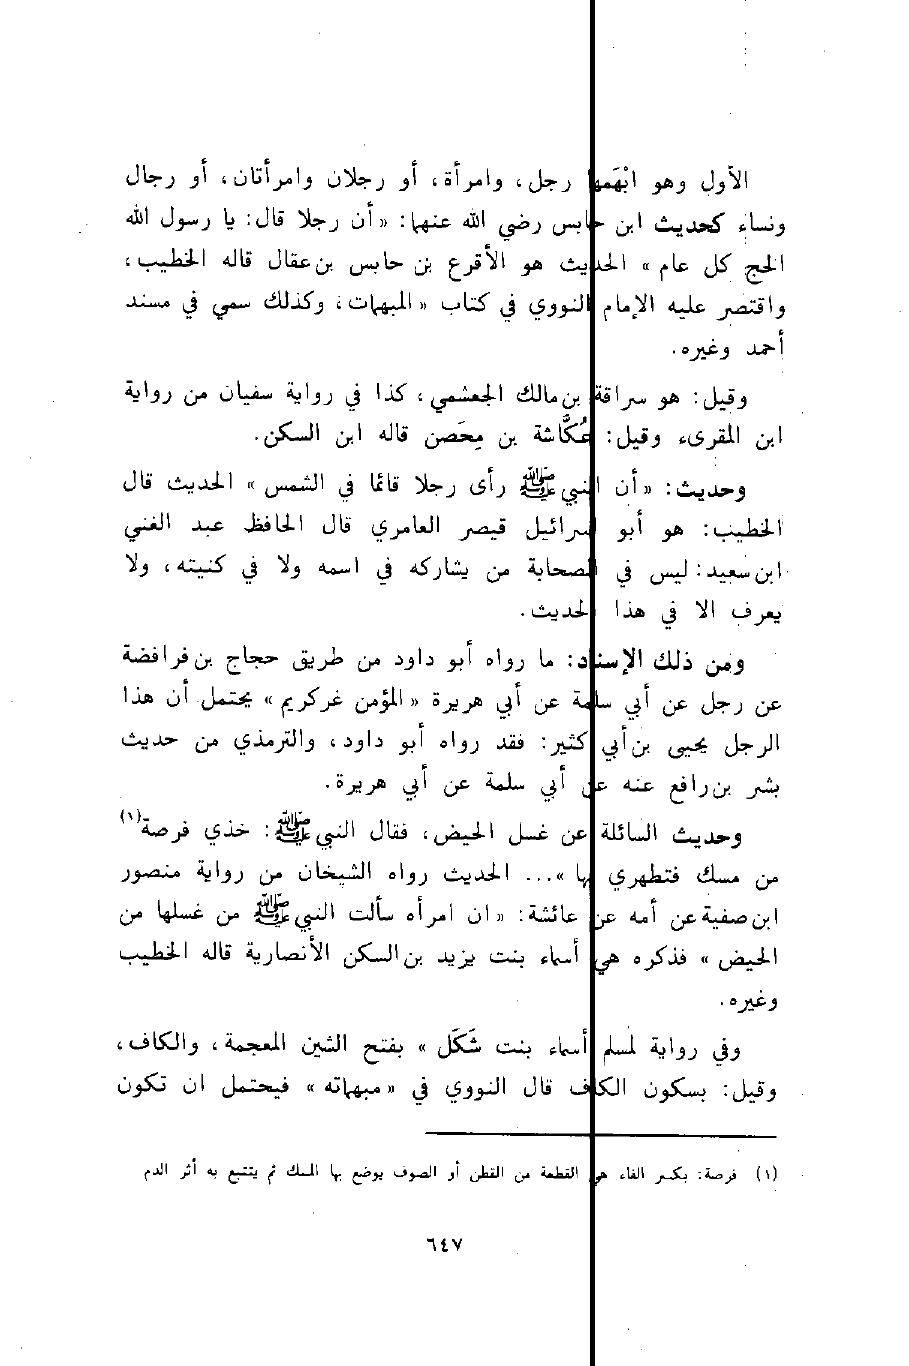 الأول وهو ابْهَمها رجل، وامرأة، أو رجلان وامرأتان، أو رجال
ونساء كحديث ابن حابس رضي الله عنهما: «أن رجلا قال: يا رسول الله
الحج كل عام» الحديث هو الأقرع بن حابس بن عقال قاله الخطيب،
واقتصر عليه الإمام النووي في كتاب «المبهمات، وكذلك سمي في مسند
أحمد وغيره.
وقيل: هو سراقة بن مالك الجعشمي، كذا في رواية سفيان من رواية
ابن المقرىء وقيل: عُكَّاشة بن مِحَصن قاله ابن السكن.
وحديث: «أن النبي ﷺ رأى رجلا قائما في الشمس» الحديث قال
الخطيب: هو أبو إسرائيل قيصر العامري قال الحافظ عبد الغني
ابن سعيد: ليس في الصحابة من يشاركه في اسمه ولا في كنيته، ولا
يعرف الا في هذا الحديث.
ومن ذلك الإسناد: ما رواه أبو داود من طريق حجاج بن فرافضة
عن رجل عن أبي سلمة عن أبي هريرة «المؤمن غر كريم» يحتمل أن هذا
الرجل يحيى بن أبي كثير: فقد رواه أبو داود، والترمذي من حديث
بشر بن رافع عنه عن أبي سلمة عن أبي هريرة.
وحديث السائلة عن غسل الحيض، فقال النبي ﷺ: خذي فرصة(١)
من مسك فتطهري بها»... الحديث رواه الشيخان من رواية منصور
ابن صفية عن أمه عن عائشة: «ان امرأه سألت النبي ﷺ من غسلها من
الحيض» فذكره هي أسماء بنت يزيد بن السكن الأنصارية قاله الخطيب
وغيره.
وفي رواية لمسلم أسماء بنت شَكَل» بفتح الشين المعجمة، والكاف،
وقيل: بسكون الكاف قال النووي في «مبهماته» فيحتمل ان تكون
(١) فرصة: بكسر الفاء هي القطعة من القطن أو الصوف يوضع بها المسك ثم يتتبع به أثر الدم
٦٤٧